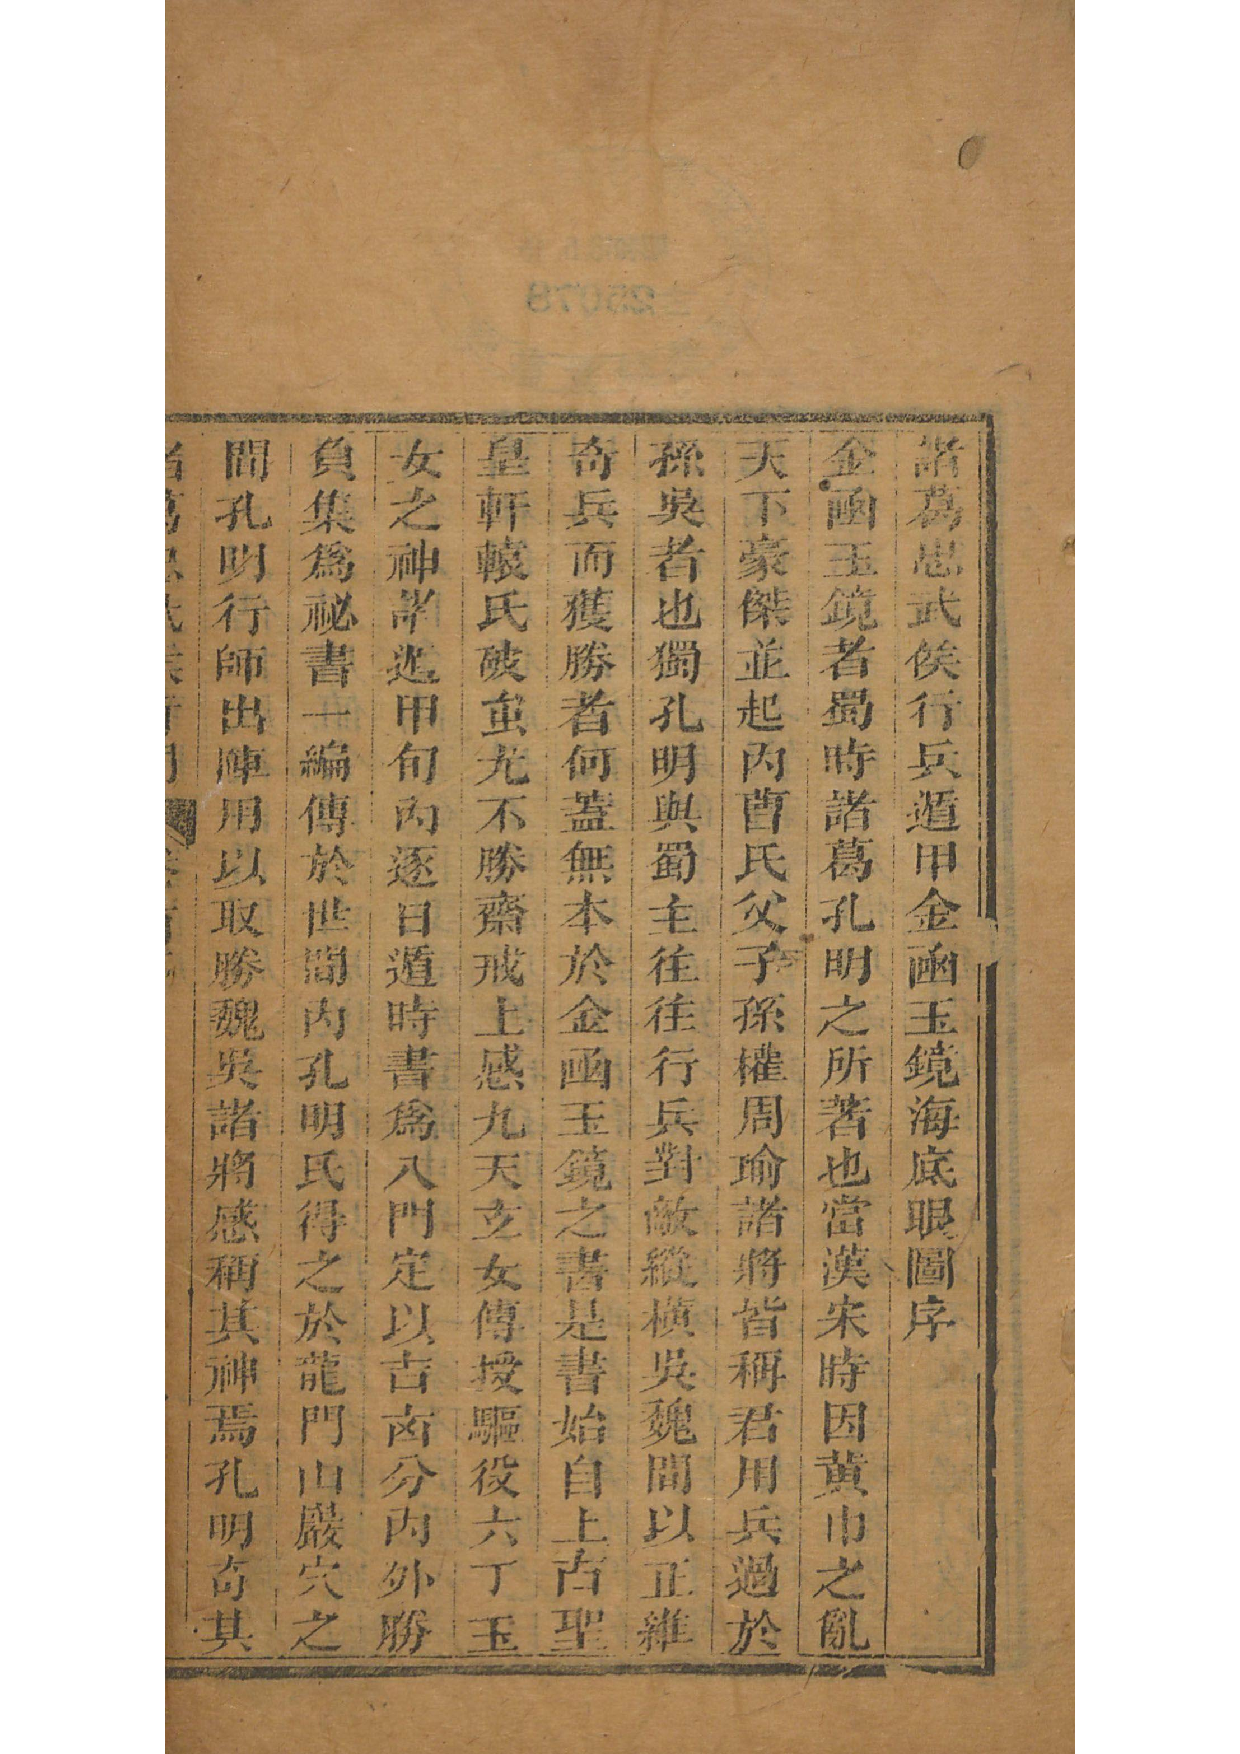 諸葛忠武侯行兵遁甲金函玉鏡海底眼圖序
金函玉鏡者蜀時諸葛孔明之所著也當漢末時因黃巾之亂
天下豪傑並起內曹氏父子孫權周瑜諸將皆稱君用兵過於
孫吳者也獨孔明與蜀主往往行兵對敵縱橫吳魏間以正雜
奇兵而獲勝者何蓋無本於金函玉鏡之書是書始自上古聖
皇軒轅氏破蚩尤不勝齋戒上感九天玄女傳授驅役六丁玉
女之神諸遁甲旬內逐日遁時書爲八門定以吉凶分內外勝
負集爲祕書一編傳於世間內孔明氏得之於龍門山巖穴之
間孔明行師出陣用以取勝魏吳諸將感稱其神焉孔明奇其
25078